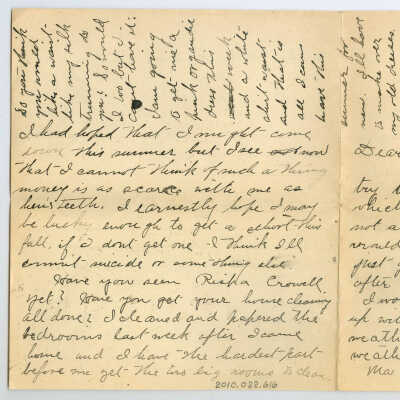 So you think
you would
like a waist
like my silk
trimming do
you? So would
I too but I
can't have it.
I am going
to get me a
pink organdie
dress this
week
and a white
shirt waist
and that is
all I can
have this
summer for
new. I'll have
to make over
my old dresses
I had hoped that I might come
down this summer but I see now
that I cannot think of such a thing
money is as scarce with me as
hen's teeth. I earnestly hope I may
be lucky enough to get a school this
fall, if I dont get one I think I'll
commit suicide or something else.
Have you seen Rieka Crowell
yet? Have you got your housecleaning
all done? I cleaned and papered the
bedrooms last week after I came
home and I have the hardest part
before me yet the two big rooms to clean.
2010.022.616
Dear
try t
which
not a
would
just y
after
I wou
up wit
weath
weath
Ma